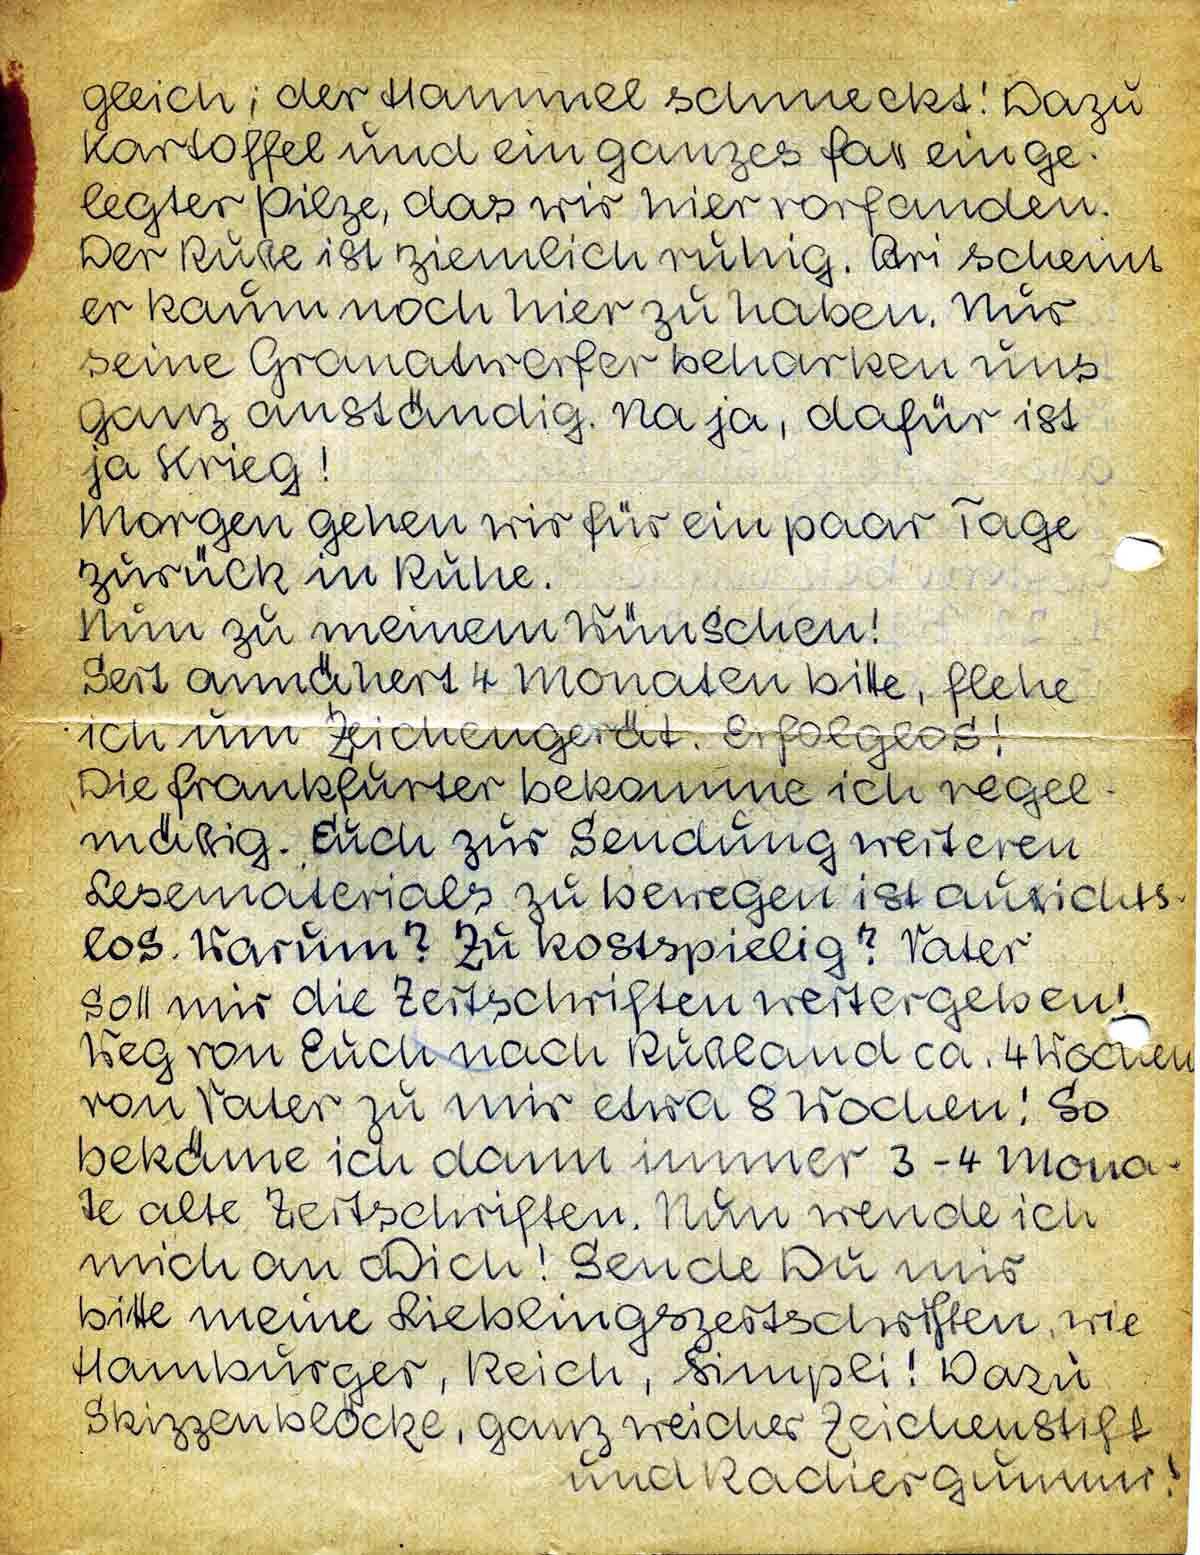 gleich; der Hammel schmeckt! Dazu
Kartoffel und ein ganzes Faß einge-
legter Pilze, das wir hier vorfanden.
Der Ruße ist ziemlich ruhig. Ari scheint
er kaum noch hier zu haben. Nur
seine Granatwerfer beharken uns
ganz anständig. Na ja, dafür ist
ja Krieg!
Morgen gehen wir für ein paar Tage
zurück in Ruhe.
Nun zu meinem Wünschen!
Seit annähert 4 Monaten bitte, flehe
ich um Zeichengerät. Erfolglos!
Die Frankfurter bekomme ich regel-
mäßig. Euch zur Sendung weiteren
Lesematerials zu bewegen ist aussichts-
los. Warum? Zu kostspielig? Vater
soll mir die Zeitschriften weitergeben!
Weg von Euch nach Rußland ca. 4 Wochen
von Vater zu mir etwa 8 Wochen! So
bekäme ich dann immer 3-4 Mona-
te alte Zeitschriften. Nun wende ich
mich an Dich! Sende Du mir
bitte meine Lieblingszeitschriften, wie
Hamburger, Reich, Simpli! Dazu
Skizzenblöcke, ganz weicher Zeichenstift
und Radiergummi!